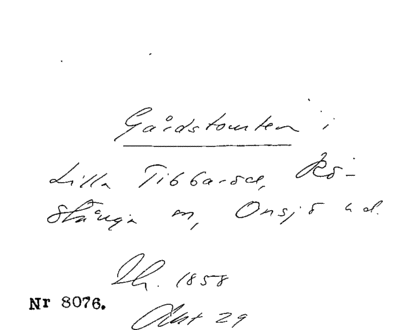 Gårdstomten i
Lilla Tibbaröd, Rö-
stånga sn, Onsjö hd.
Th. 1858
Nr 8076.
Akt 29